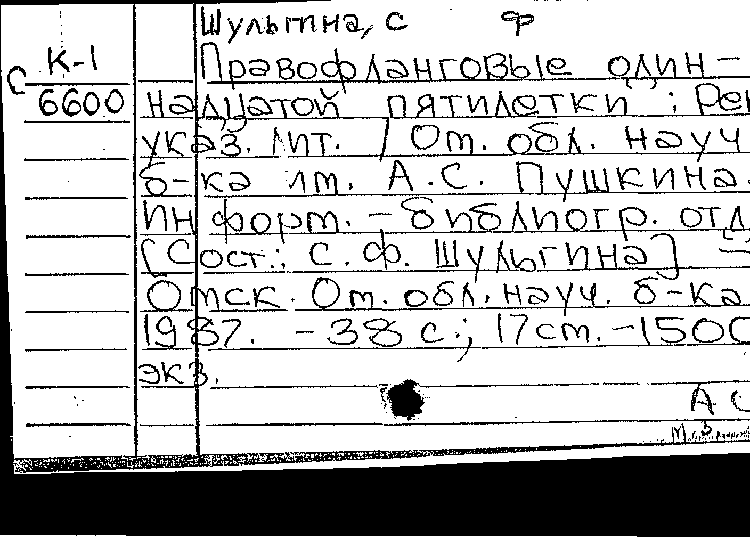 Шульгина, С Ф
К-1
С
Правофланговые один-
6600 надцатой пятилетки : Рек
указ. лит. / Ом. обл. науч
б-ка им. А.С. Пушкина.
Информ. - библиогр. отд
[Сост.: С.Ф. Шульгина] -
Омск. Ом. обл. науч. б-ка
1987. - 38 с.; 17 см. - 1500
экз.
А С